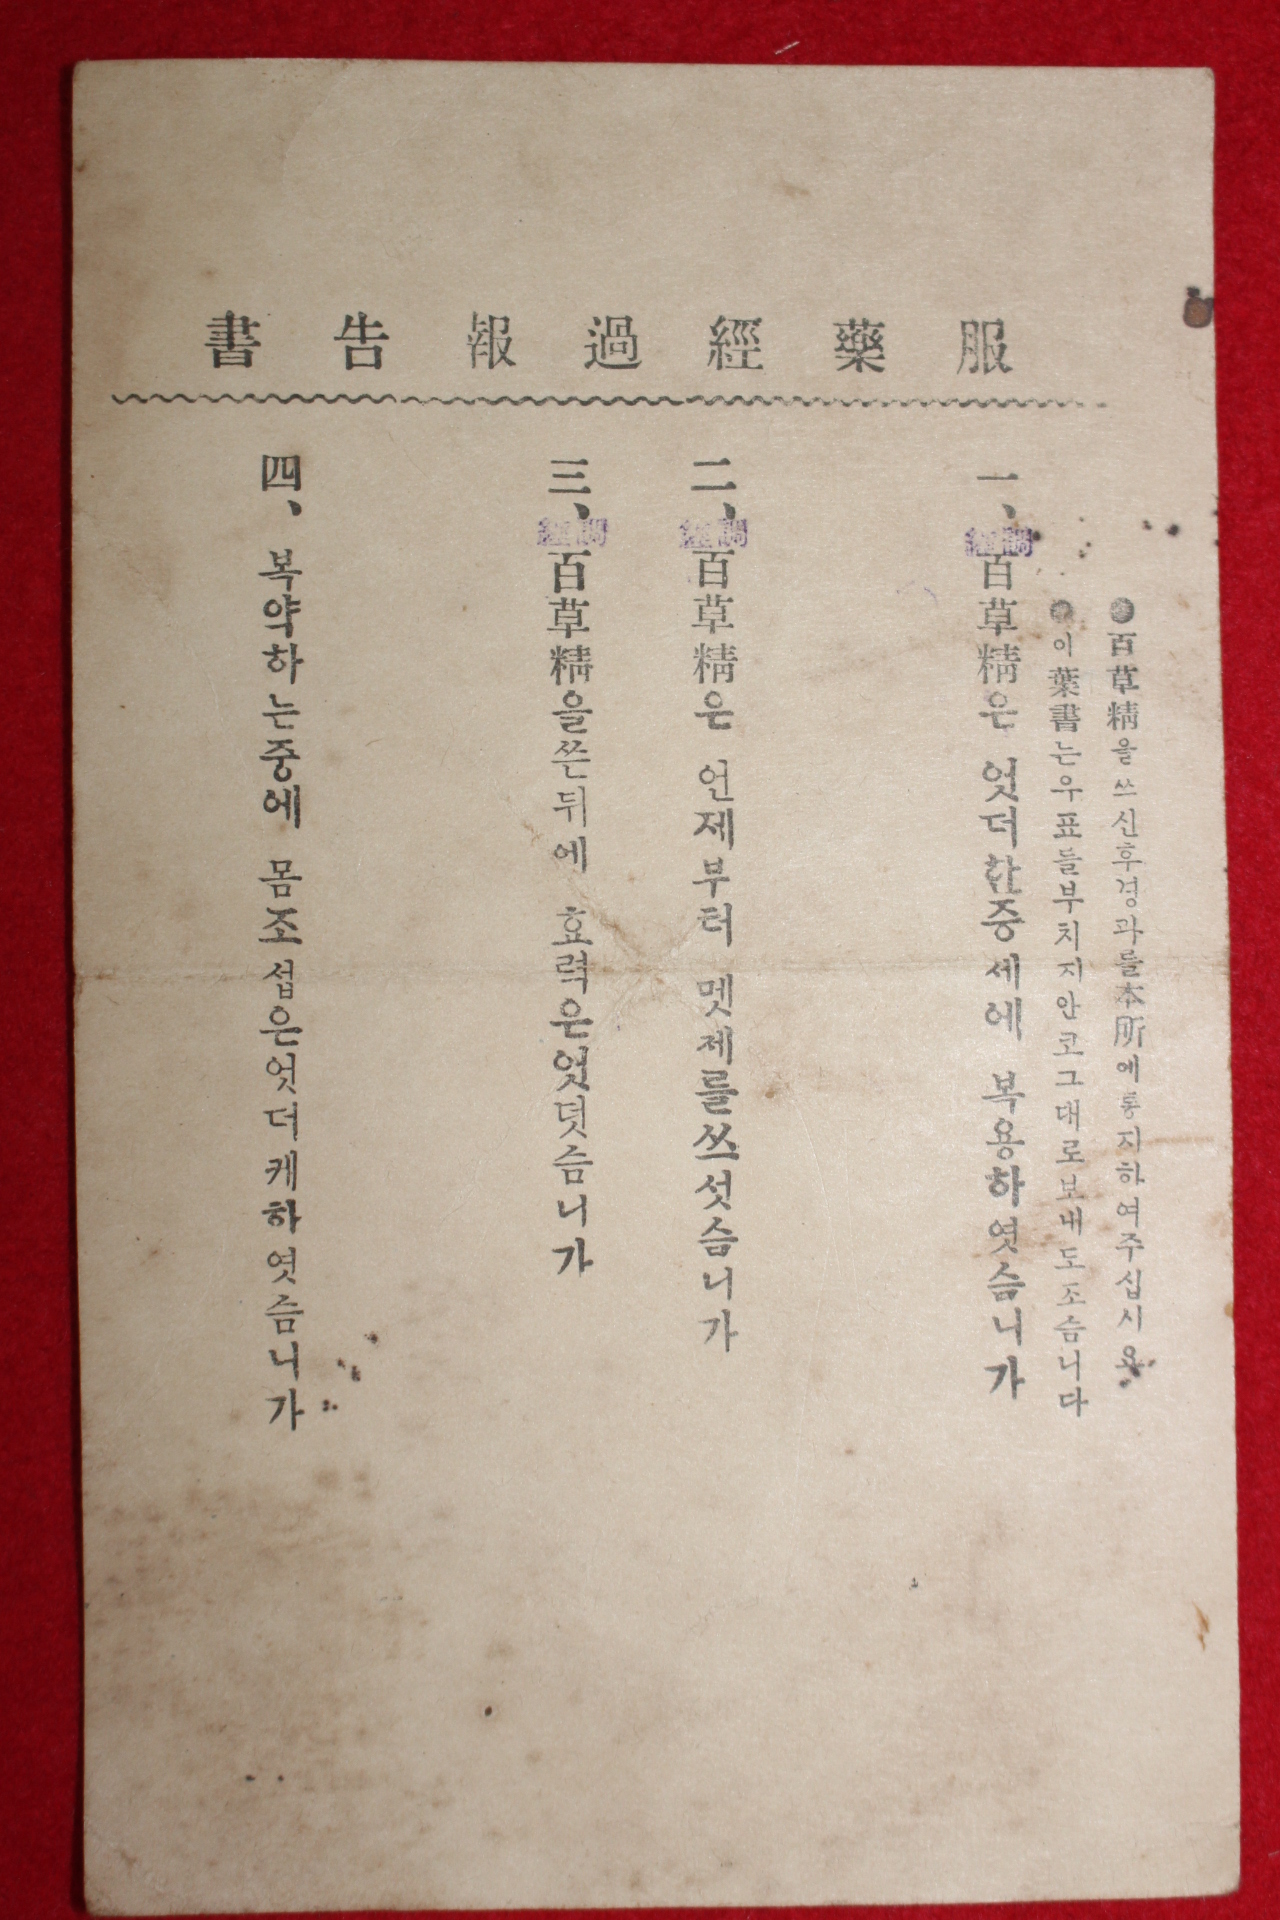 服藥經過報告書
●百草精을쓰신후경과를本所에통지하여주십시요
●이葉書는우표를부치지안코그대로보내도조습니다
一、調經百草精은 엇더한증세에 복용하엿슴니가
二、調經百草精은 언제부터 멧제를쓰섯슴니가
三、調經百草精을쓴뒤에 효력은엇덧슴니가
四、복약하는중에 몸조섭은엇더케하엿슴니가